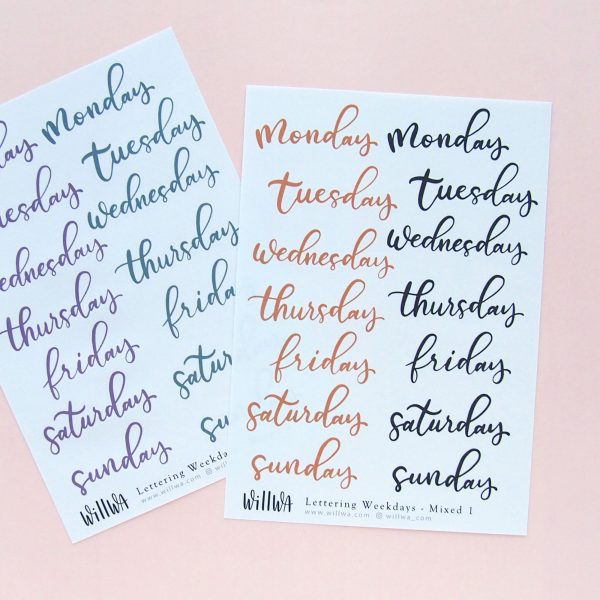 day monday
tuesday tuesday
wednesday wednesday
thursday thursday
friday friday
saturday saturday
sunday
willwa Lettering Weekdays
www.willwa.com
monday monday
tuesday tuesday
wednesday wednesday
thursday thursday
friday friday
saturday saturday
sunday sunday
willwa Lettering Weekdays - Mixed 1
www.willwa.com willwa_com